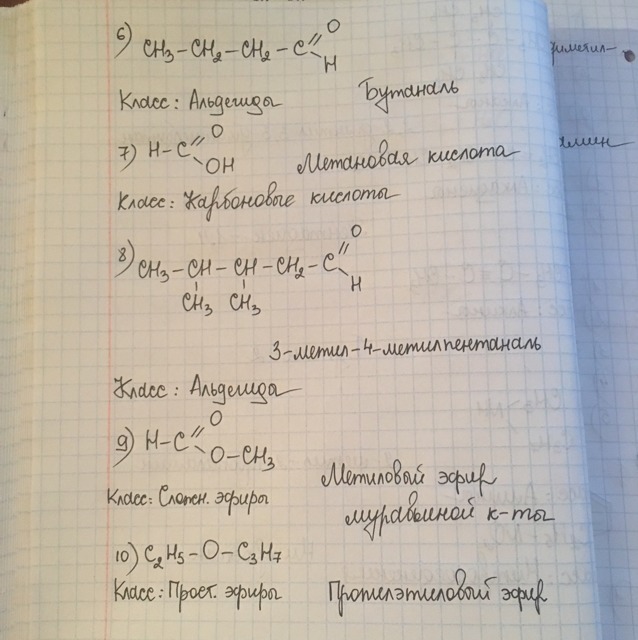 6) CH₃–CH₂–CH₂–C
O
H
Класс: Альдегиды Бутаналь
7) H–C
O
OH Метановая кислота
Класс: Карбоновые кислоты
8) CH₃–CH–CH–CH₂–C
O
H
CH₃ CH₃
3-метил-4-метилпентаналь
Класс: Альдегиды
9) H–C
O
O–CH₃
Метиловый эфир
Класс: Сложн. эфиры муравьиной к-ты
10) C₂H₅–O–C₃H₇
Класс: Прост. эфиры Пропилэтиловый эфир